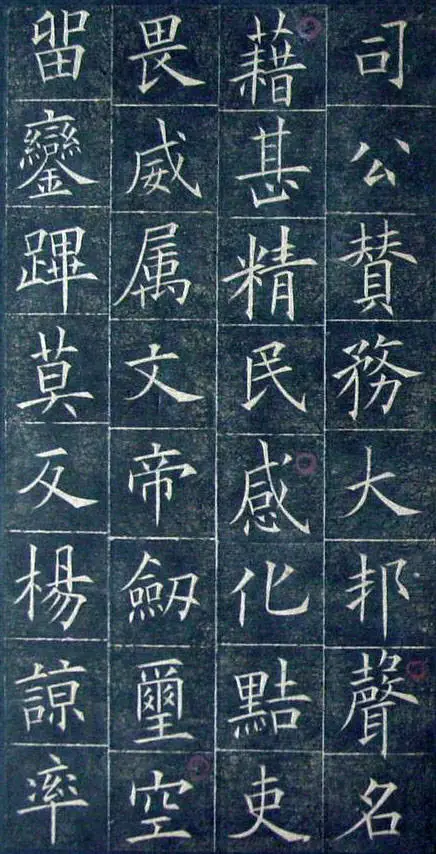 司公賛務大邦聲名
藉甚精民感化黠吏
畏威属文帝劔璽空
留鑾蹕莫反楊諒率